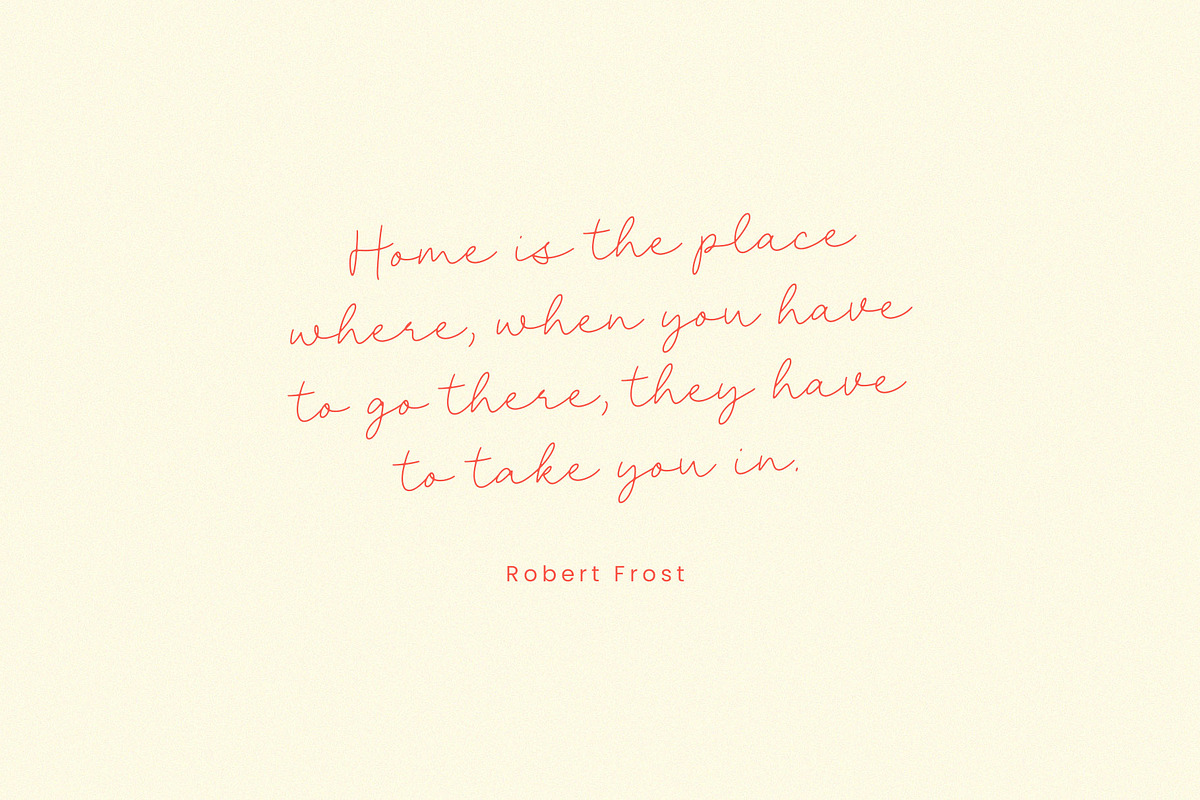 Home is the place
where, when you have
to go there, they have
to take you in.
Robert Frost